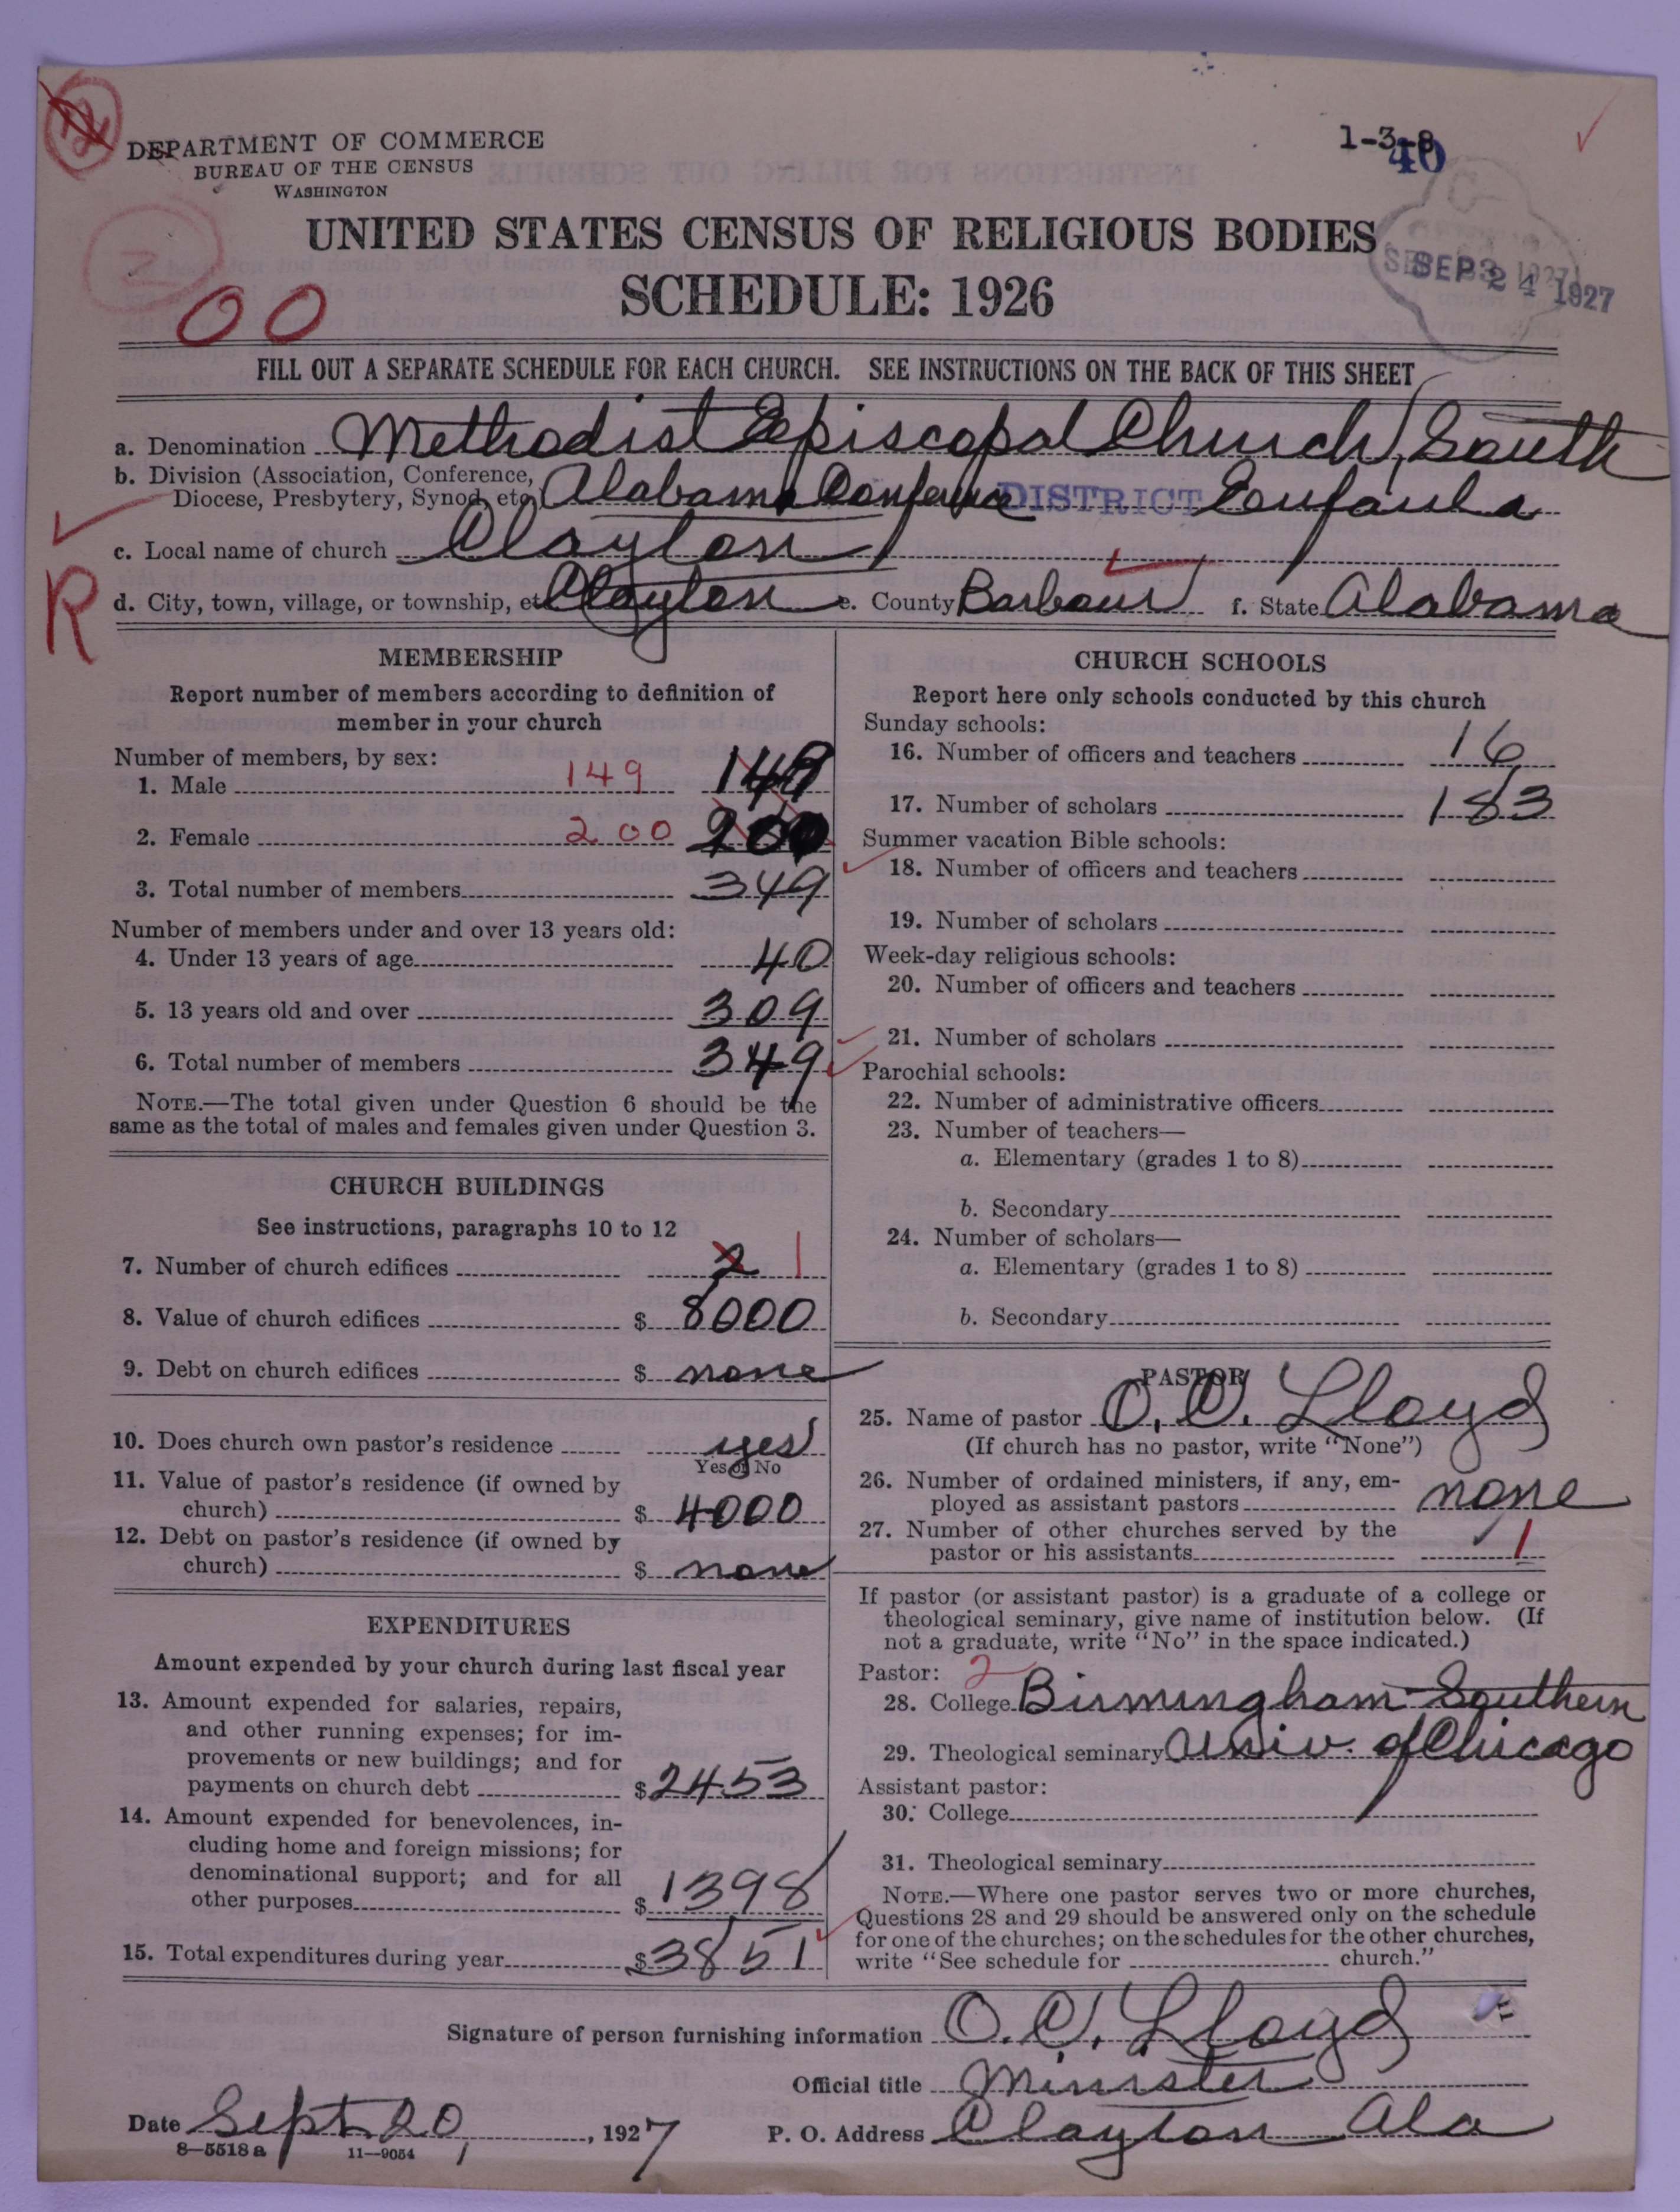 2
DEPARTMENT OF COMMERCE
BUREAU OF THE CENSUS
WASHINGTON
1-3-8
40
UNITED STATES CENSUS OF RELIGIOUS BODIES
SCHEDULE: 1926
SEP 24 1927
2
00
FILL OUT A SEPARATE SCHEDULE FOR EACH CHURCH. SEE INSTRUCTIONS ON THE BACK OF THIS SHEET
a. Denomination Methodist Episcopal Church, South
b. Division (Association, Conference,
Diocese, Presbytery, Synod, etc.) Alabama Conference DISTRICT Eufaula
c. Local name of church Clayton
R
d. City, town, village, or township, etc. Clayton e. County Barbour f. State Alabama
MEMBERSHIP
Report number of members according to definition of
member in your church
Number of members, by sex:
1. Male 149 149
2. Female 200 200
3. Total number of members 349
Number of members under and over 13 years old:
4. Under 13 years of age 40
5. 13 years old and over 309
6. Total number of members 349
NOTE.—The total given under Question 6 should be the
same as the total of males and females given under Question 3.
CHURCH BUILDINGS
See instructions, paragraphs 10 to 12
7. Number of church edifices 2 1
8. Value of church edifices $ 8000
9. Debt on church edifices $ none
10. Does church own pastor's residence yes
Yes or No
11. Value of pastor's residence (if owned by
church) $ 4000
12. Debt on pastor's residence (if owned by
church) $ none
EXPENDITURES
Amount expended by your church during last fiscal year
13. Amount expended for salaries, repairs,
and other running expenses; for im-
provements or new buildings; and for
payments on church debt $ 2453
14. Amount expended for benevolences, in-
cluding home and foreign missions; for
denominational support; and for all
other purposes $ 1398
15. Total expenditures during year $ 3851
CHURCH SCHOOLS
Report here only schools conducted by this church
Sunday schools:
16. Number of officers and teachers 16
17. Number of scholars 183
Summer vacation Bible schools:
18. Number of officers and teachers
19. Number of scholars
Week-day religious schools:
20. Number of officers and teachers
21. Number of scholars
Parochial schools:
22. Number of administrative officers
23. Number of teachers—
a. Elementary (grades 1 to 8)
b. Secondary
24. Number of scholars—
a. Elementary (grades 1 to 8)
b. Secondary
PASTOR
25. Name of pastor O. C. Lloyd
(If church has no pastor, write "None")
26. Number of ordained ministers, if any, em-
ployed as assistant pastors none
27. Number of other churches served by the
pastor or his assistants 1
If pastor (or assistant pastor) is a graduate of a college or
theological seminary, give name of institution below. (If
not a graduate, write "No" in the space indicated.)
Pastor: 2
28. College Birmingham-Southern
29. Theological seminary Univ. of Chicago
Assistant pastor:
30. College
31. Theological seminary
NOTE.—Where one pastor serves two or more churches,
Questions 28 and 29 should be answered only on the schedule
for one of the churches; on the schedules for the other churches,
write "See schedule for church."
Signature of person furnishing information O. C. Lloyd
Official title Minister
Date Sept. 20, 1927 P. O. Address Clayton Ala
8-5518 a 11-9054